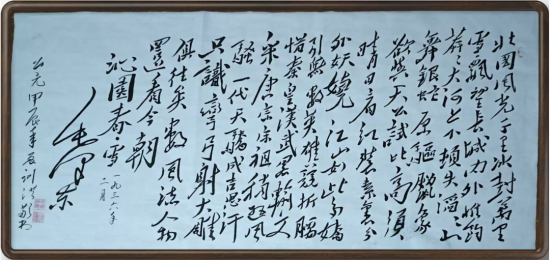 北国风光千里冰封萬里
雪飘望长城内外惟余
莽莽大河上下顿失滔滔山
舞银蛇原驱腊象
欲与天公试比高须
晴日看红装素裹分
外妖娆江山如此多娇
引无数英雄竞折腰
惜秦皇汉武略输文
采唐宗宋祖稍逊风
骚一代天骄成吉思汗
只识弯弓射大雕
俱往矣数风流人物
还看今朝
沁园春雪
一九三六年
二月
毛泽东
公元甲辰年